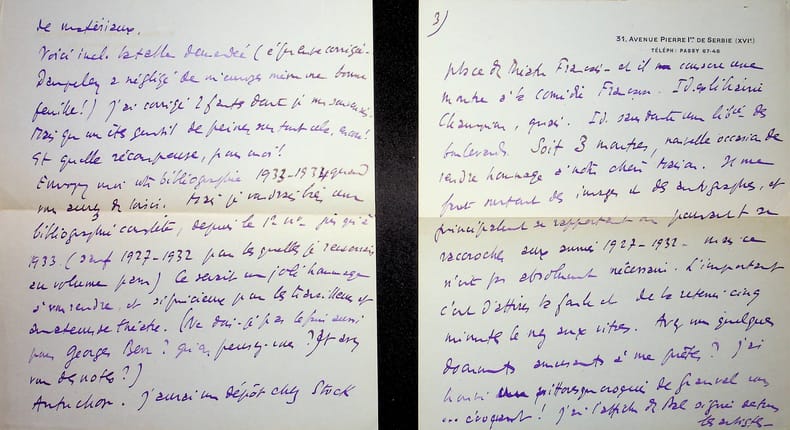 de matériaux.
Voici incl. la table demandée (épreuve corrigée.
Dampeley a négligé de m'envoyer même une bonne
feuille!) J'ai corrigé 2 fautes dont je me souvenais.
Mais que vous êtes gentil de peiner sur tout cela, encore!
Et quelle récompense, pour moi!
Envoyez moi votre bibliographie 1933-1934 quand
vous aurez le loisir. Mais je voudrais bien une
bibliographie complète, depuis le 1er no jusqu'à
1933 (sauf 1927-1932 pour lesquelles je renverrais
au volume paru) Ce serait un joli hommage
à vous rendre, et si précieux pour les travailleurs et
amateurs de théâtre. (Ne dois-je pas le faire aussi
pour Georges Berr? qu'en pensez-vous? Et avez
vous des notes?)
Autre chose. J'aurai un dépôt chez Stock
3)
31, AVENUE PIERRE Ier DE SERBIE (XVIe)
TÉLÉPH: PASSY 67-48
place du Théâtre Français - et il consacre une
montre à la Comédie Française. Id. librairie
Champion, quai. Id. sans doute une libie des
boulevards. Soit 3 montres, nouvelle occasion de
rendre hommage à notre chère Maison. Il me
faut surtout des images et des autographes, et
principalement se rapportant ou pouvant se
raccrocher aux années 1927-1932 - mais ce
n'est pas absolument nécessaire. L'important
c'est d'attirer la foule et de la retenir cinq
minutes le nez aux vitres. Avez vous quelques
documents amusants à me prêter? J'ai
choisi pittoresque croquis de Granval vous
... croquant! J'ai l'affiche du Bal signée de tous
les artistes -